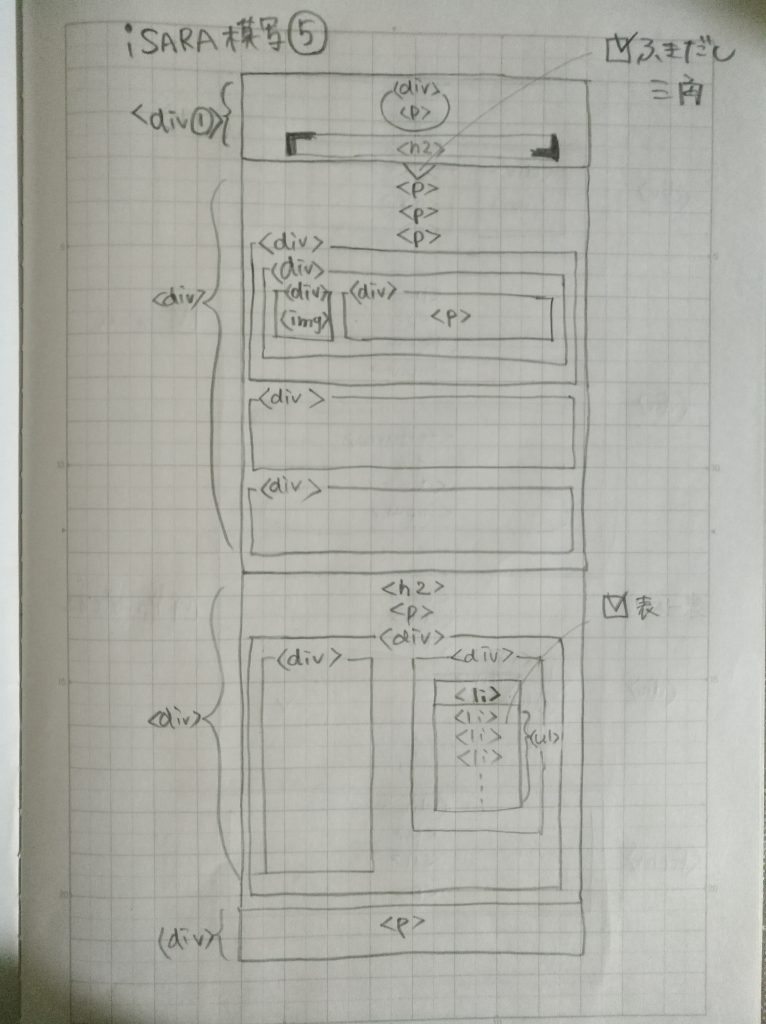 iSARA模写⑤
☑ふきだし
三角
<div①>
<div>
<p>
<h2>
<p>
<p>
<p>
<div>
<div>
<div>
<div>
<div>
<img>
<p>
<div>
<div>
<h2>
<p>
☑表
<div>
<div>
<div>
<div>
<li>
<li>
<li>
<li>
<ul>
<div>
<p>